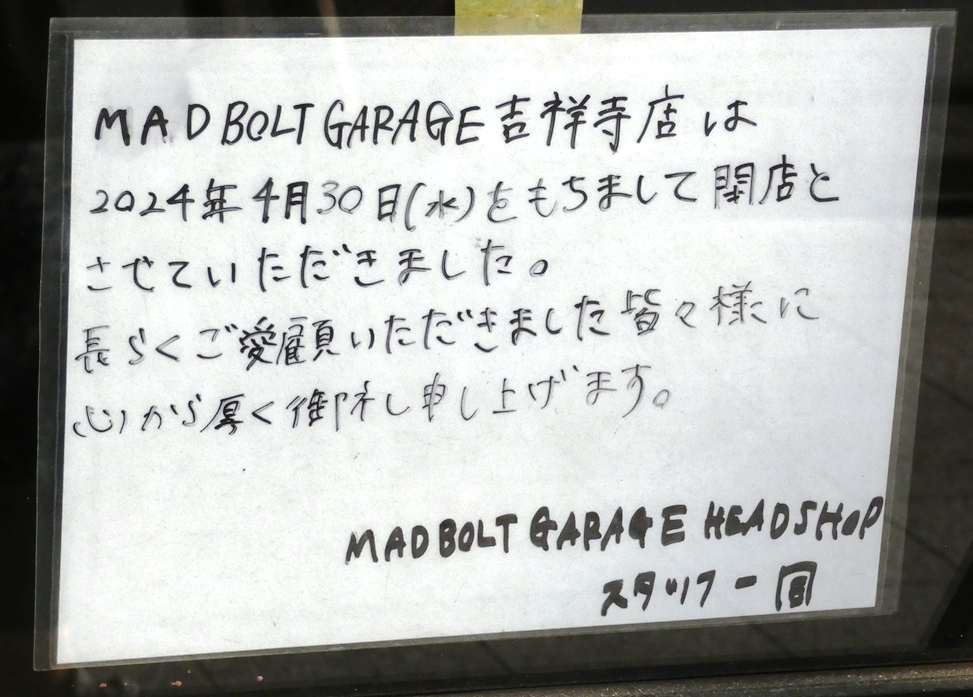 MAD BOLT GARAGE 吉祥寺店は
2024年4月30日(水)をもちまして閉店と
させていただきました。
長らくご愛顧いただきました皆々様に
心から厚く御礼し申し上げます。
MAD BOLT GARAGE HEADSHOP
スタッフ一同